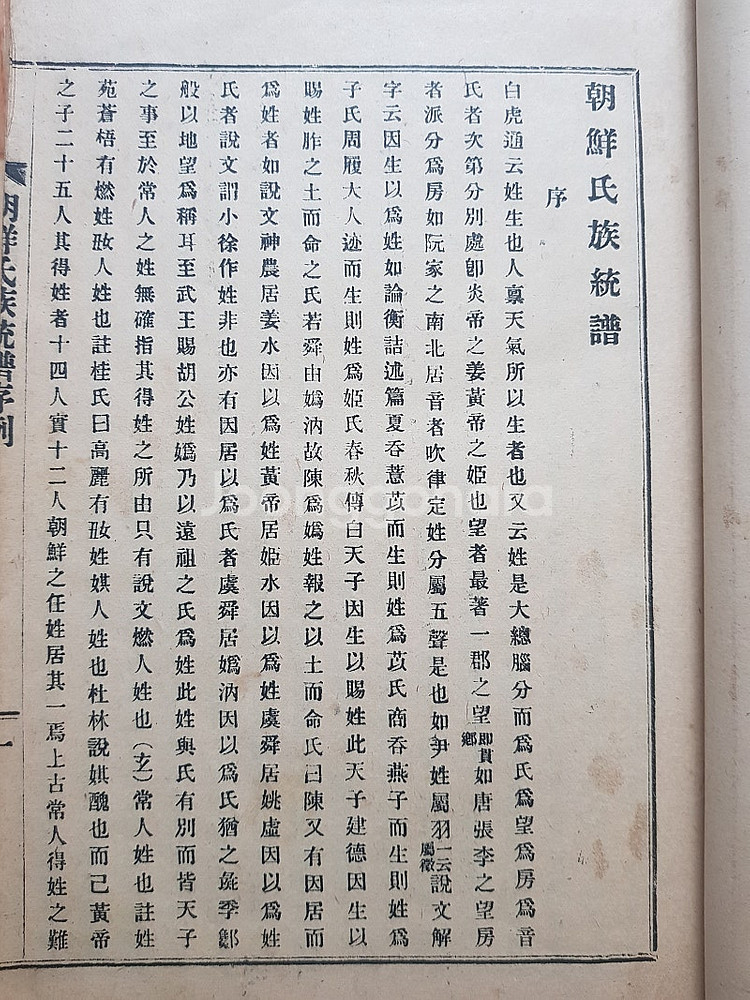 朝鮮氏族統譜
序
白虎通云姓生也人禀天氣所以生者也又云姓是大總腦分而爲氏爲望爲房爲音
氏者次第分別處卽炎帝之姜黃帝之姬也望者最著一郡之望卽貫鄕如唐張李之望房
者派分爲房如阮家之南北居音者吹律定姓分屬五聲是也如尹姓屬羽一云屬徵說文解
字云因生以爲姓如論衡詰述篇夏呑薏苡而生則姓爲苡氏商呑燕子而生則姓爲
子氏周履大人迹而生則姓爲姬氏春秋傳白天子因生以賜姓此天子建德因生以
賜姓胙之土而命之氏若舜由嬀汭故陳爲嬀姓報之以土而命氏曰陳又有因居而
爲姓者如說文神農居姜水因以爲姓黃帝居姬水因以爲姓虞舜居姚虛因以爲姓
氏者說文謂小徐作姓非也亦有因居以爲氏者虞舜居嬀汭因以爲氏猶之彘季鄒
般以地望爲稱耳至武王賜胡公姓嬀乃以遠祖之氏爲姓此姓與氏有別而皆天子
之事至於常人之姓無確指其得姓之所由只有說文燃人姓也(玄)常人姓也註姓
苑蒼梧有燃姓㚢人姓也註桂氏曰高麗有㚢姓娸人姓也杜林說娸醜也而已黃帝
之子二十五人其得姓者十四人實十二人朝鮮之任姓居其一焉上古常人得姓之難
朝鮮氏族統譜序例
一
Joonggonara